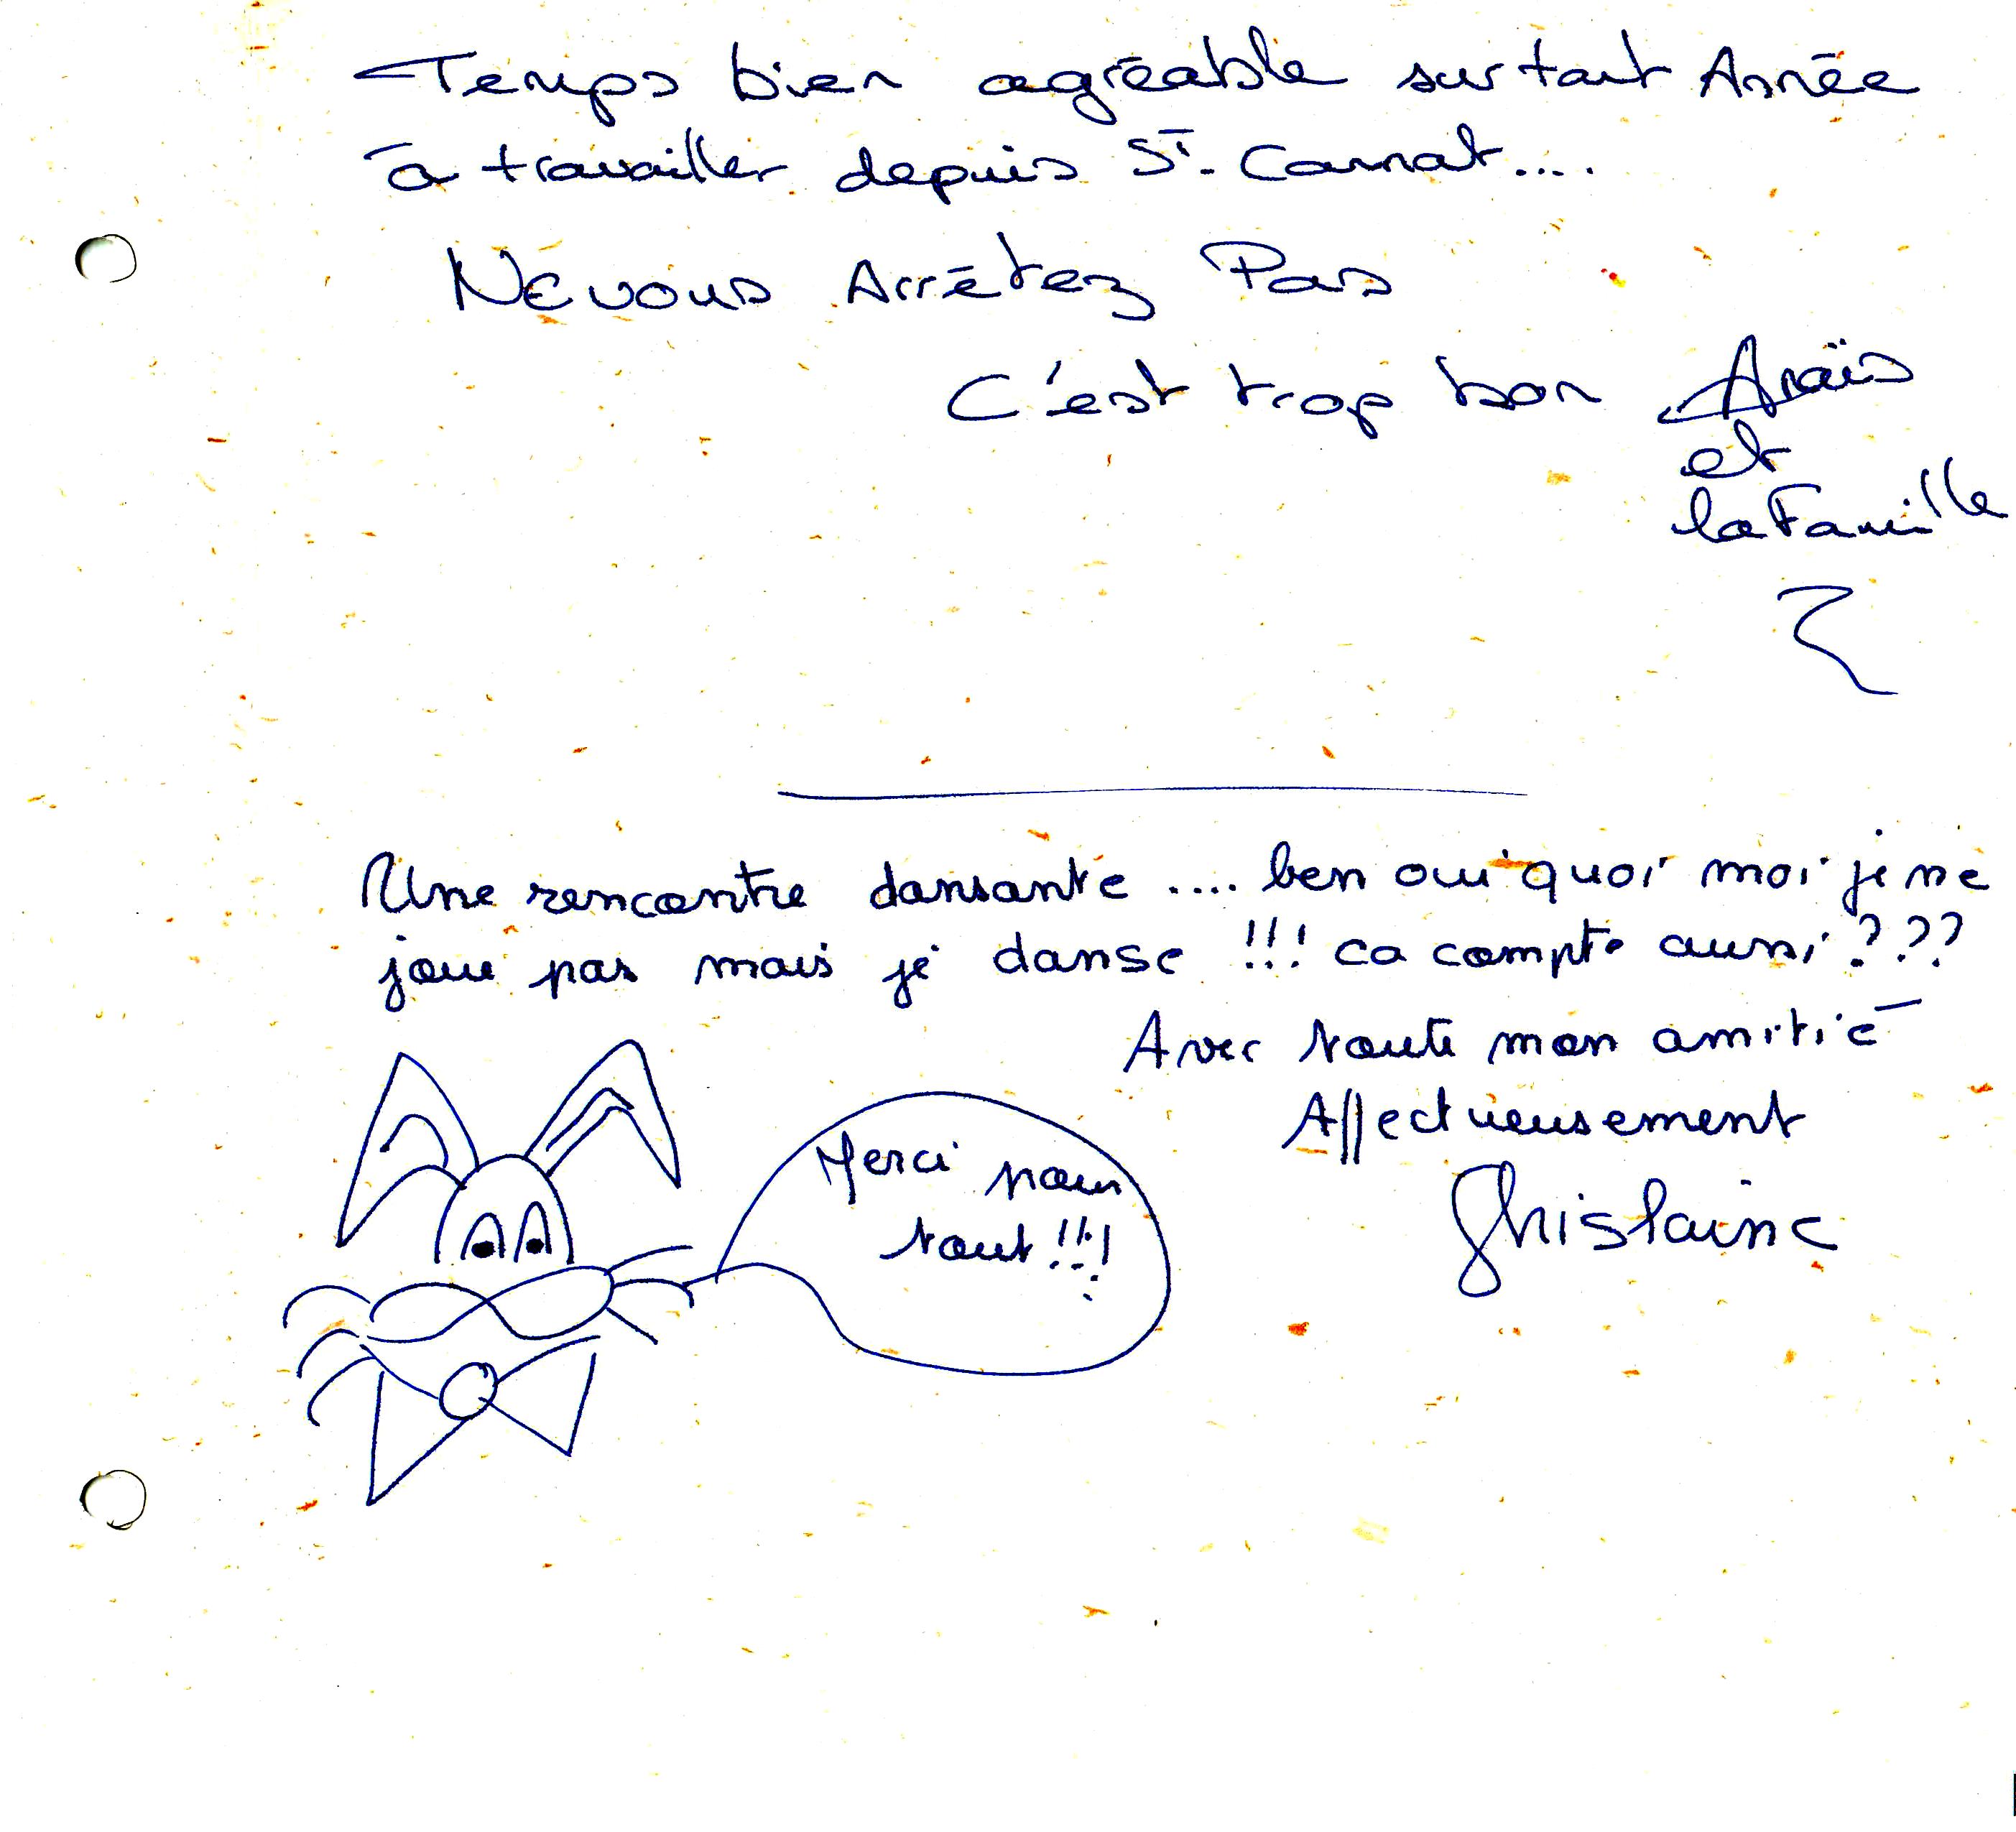 Temps bien agréable surtout Année
à travailler depuis St. Cannat....
Ne vous Arrêtez Pas
C'est trop bon Anaïs
et
la Famille
Une rencontre dansante .... ben oui quoi moi je ne
joue pas mais je danse !!! ca compte aussi ???
Avec toute mon amitié
Affectueusement
Ghislaine
Merci pour
tout !!!